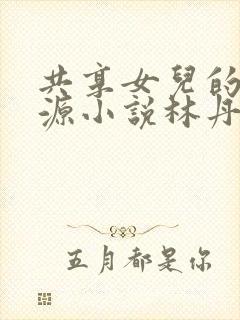 共享女兒的
源小說林丹
五月都是你